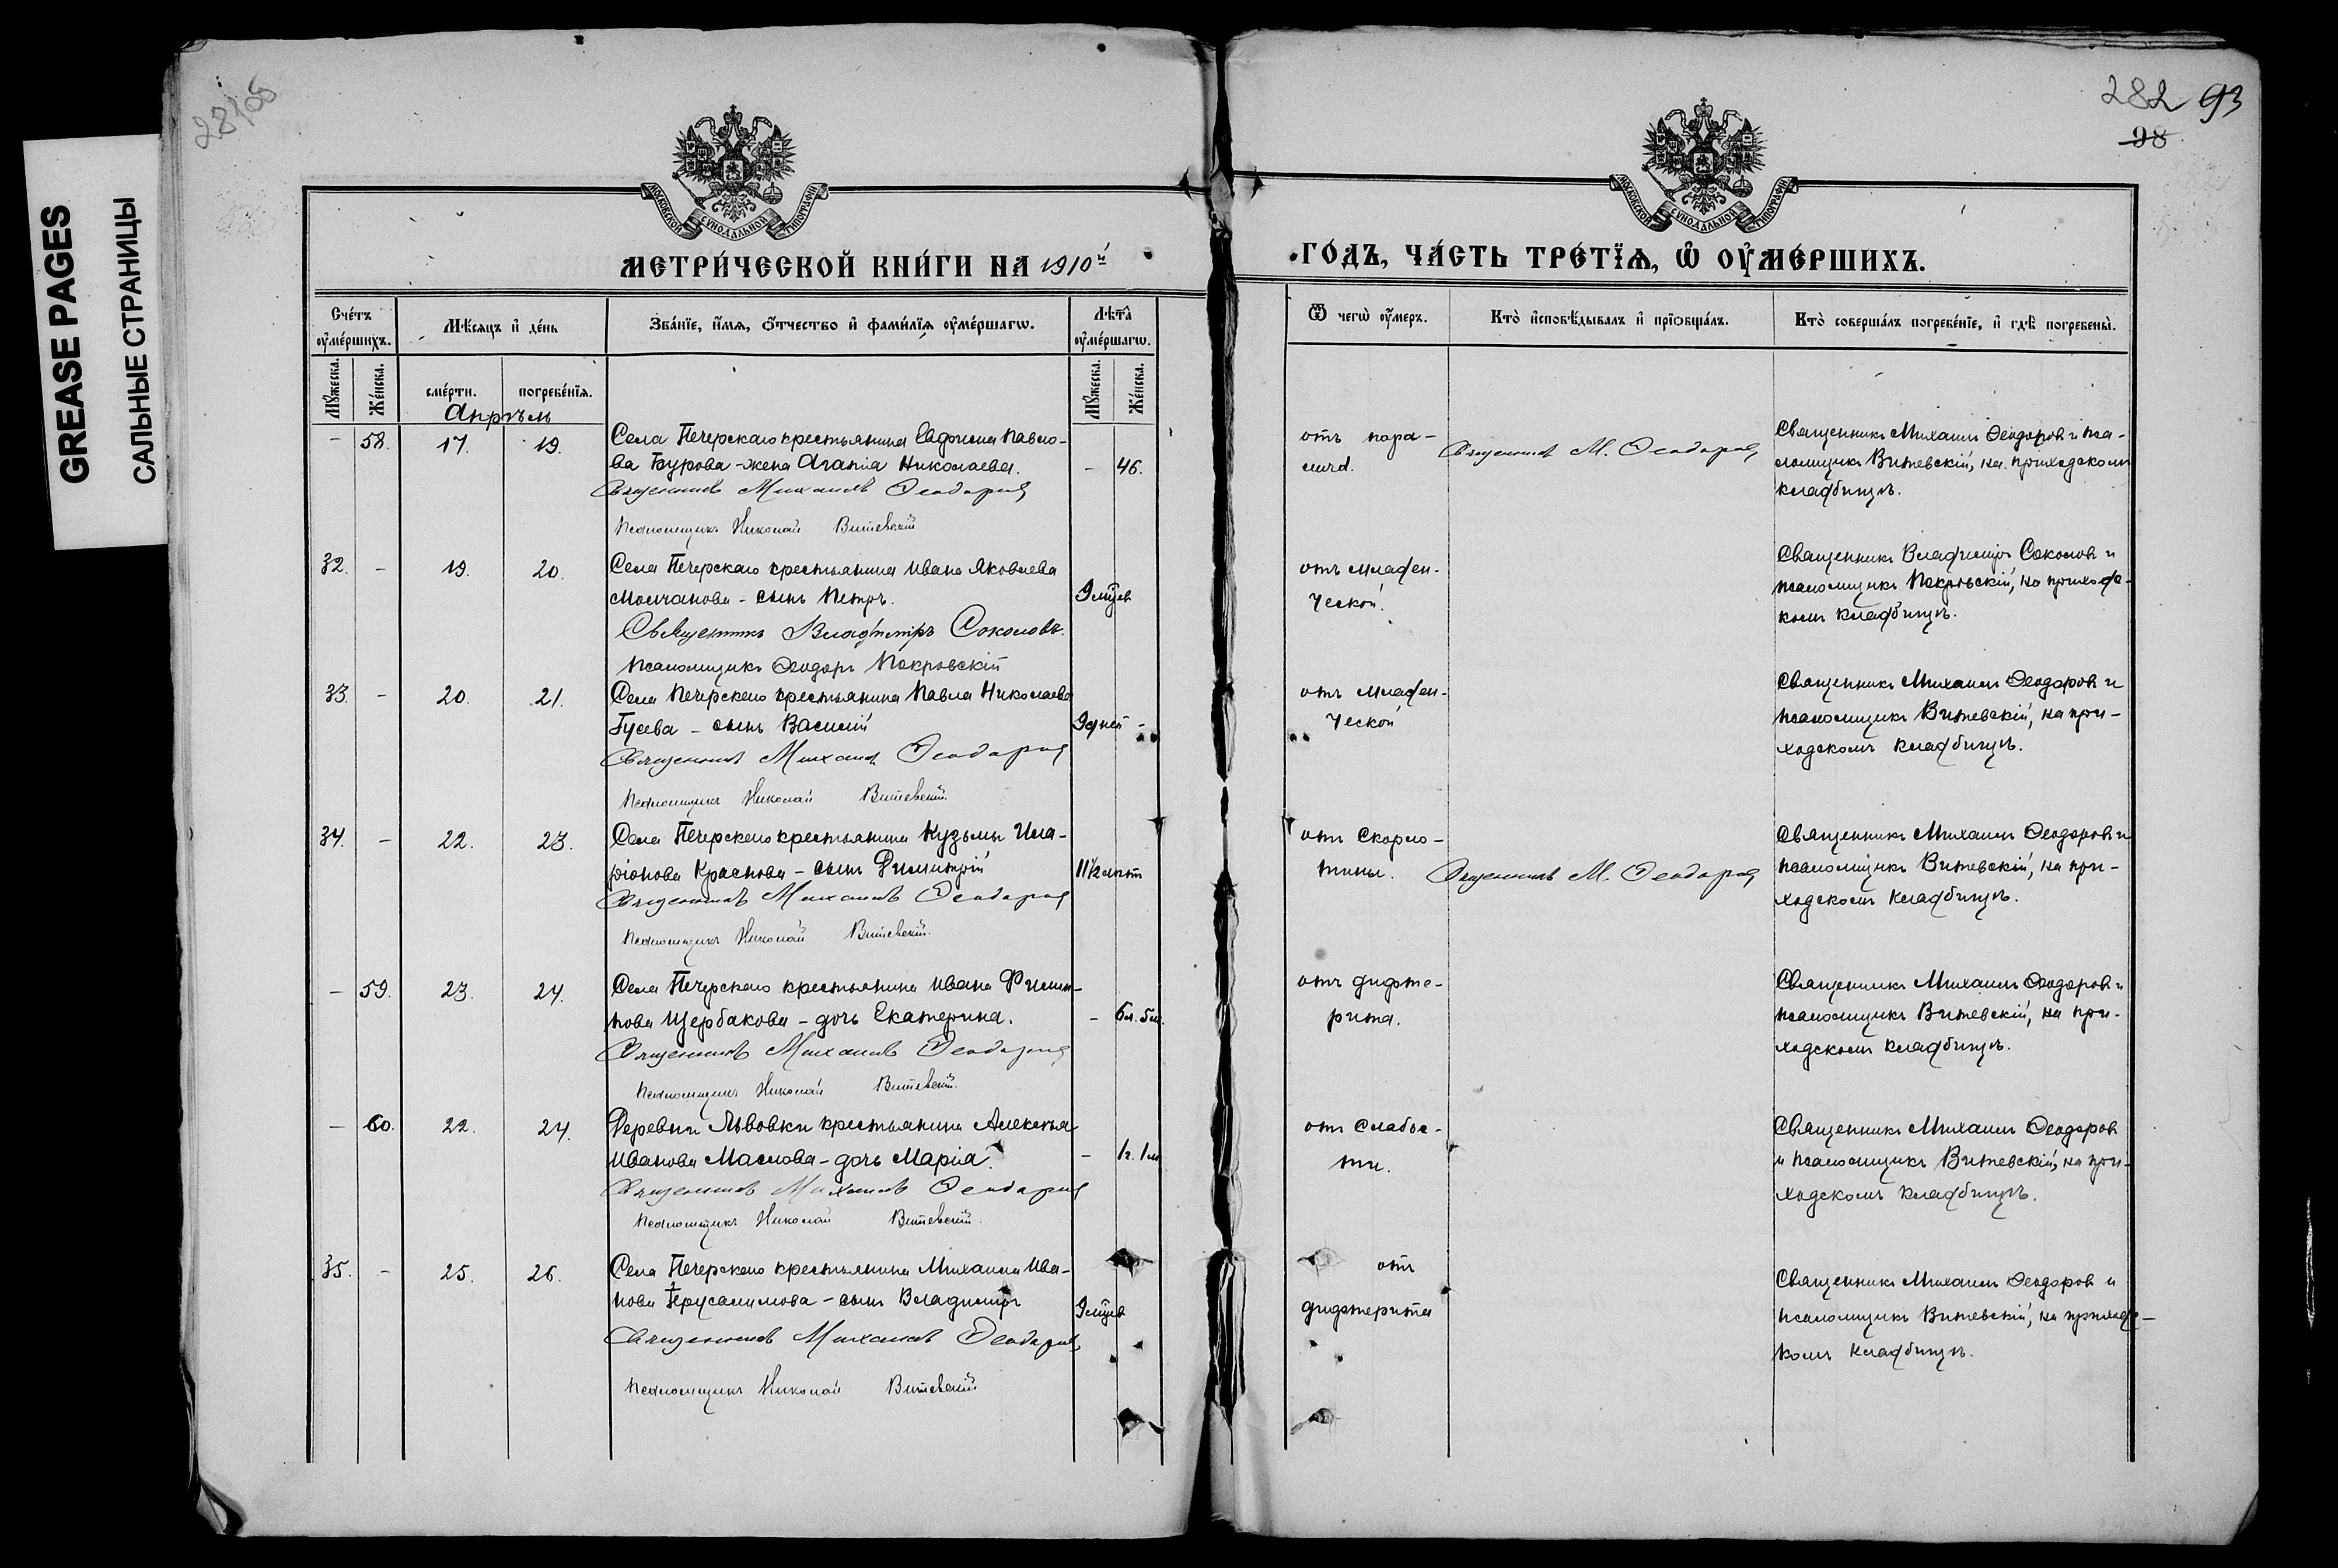 GREASE PAGES
САЛЬНЫЕ СТРАНИЦЫ
282 93
98
МОСКОВСКОЙ СѴНОДАЛЬНОЙ ТИПОГРАФІИ
МОСКОВСКОЙ СѴНОДАЛЬНОЙ ТИПОГРАФІИ
МЕТРИ́ЧЕСКОЙ КНИ́ГИ НА 1910й
ГО́ДЪ, ЧА́СТЬ ТРЕ́ТЇѦ, Ѡ҆ ОУ҆МЕ́РШИХЪ.
Сче́тъ оу҆ме́ршихъ.
Мѣ́сѧцъ и҆ де́нь
Зва́нїе, и҆́мѧ, ѻ҆́тчество и҆ фамилі́ѧ оу҆ме́ршагѡ.
Лѣ́та оу҆ме́ршагѡ.
Ѿ чегѡ̀ оу҆́меръ.
Кто̀ и҆сповѣ́дывалъ и҆ прїѻбща́лъ.
Кто̀ соверша́лъ погребе́нїе, и҆ гдѣ̀ погребены̀.
Мꙋ́жеска.
Же́нска.
сме́рти.
погребе́нїѧ.
Мꙋ́жеска.
Же́нска.
Апрѣль
- 58. 17. 19.
Села Печерскаго крестьянина Евфимія Павло-
ва Бурова - жена Агапія Николаева.
- 46.
Священникъ Михаилъ Ѳеодоровъ
Псаломщикъ Николай Витевскій
отъ пара-
лича.
Священникъ М. Ѳеодоровъ
Священникъ Михаилъ Ѳеодоровъ и пса-
ломщикъ Витевскій, на приходскомъ
кладбищѣ.
32. - 19. 20.
Села Печерскаго крестьянина Ивана Яковлева
Молчанова - сынъ Петръ.
9 мѣсяц.
Священникъ Владиміръ Соколовъ.
Псаломщикъ Ѳеодоръ Покровскій
отъ младен-
ческой.
Священникъ Владиміръ Соколовъ и
псаломщикъ Покровскій, на приход-
комъ кладбищѣ.
33. - 20. 21.
Села Печерскаго крестьянина Павла Николаева
Гусева - сынъ Василій
9 дней -
Священникъ Михаилъ Ѳеодоровъ
Псаломщикъ Николай Витевскій.
отъ младен-
ческой
Священникъ Михаилъ Ѳеодоровъ и
псаломщикъ Витевскій, на при-
ходскомъ кладбищѣ.
34. - 22. 23.
Села Печерскаго крестьянина Кузьмы Ила-
ріонова Краснова - сынъ Димитрій
11½ лѣтъ
Священникъ Михаилъ Ѳеодоровъ
Псаломщикъ Николай Витевскій.
отъ скарла-
тины.
Священникъ М. Ѳеодоровъ
Священникъ Михаилъ Ѳеодоровъ и
псаломщикъ Витевскій, на при-
ходскомъ кладбищѣ.
- 59. 23. 24.
Села Печерскаго крестьянина Ивана Филип-
пова Щербакова - дочь Екатерина.
- 6л. 5м.
Священникъ Михаилъ Ѳеодоровъ
Псаломщикъ Николай Витевскій.
отъ дифте-
рита.
Священникъ Михаилъ Ѳеодоровъ и
псаломщикъ Витевскій, на при-
ходскомъ кладбищѣ.
- 60. 22. 24.
Деревни Львовки крестьянина Алексѣя
Иванова Маслова - дочь Марія.
- 1г. 1м
Священникъ Михаилъ Ѳеодоровъ
Псаломщикъ Николай Витевскій.
отъ слабос-
ти.
Священникъ Михаилъ Ѳеодоровъ
и псаломщикъ Витевскій, на при-
ходскомъ кладбищѣ.
35. - 25. 26.
Села Печерскаго крестьянина Михаила Ива-
нова Іерусалимова - сынъ Владиміръ
9 мѣсяц.
Священникъ Михаилъ Ѳеодоровъ
Псаломщикъ Николай Витевскій
отъ
дифтерита
Священникъ Михаилъ Ѳеодоровъ и
псаломщикъ Витевскій, на приход-
комъ кладбищѣ.